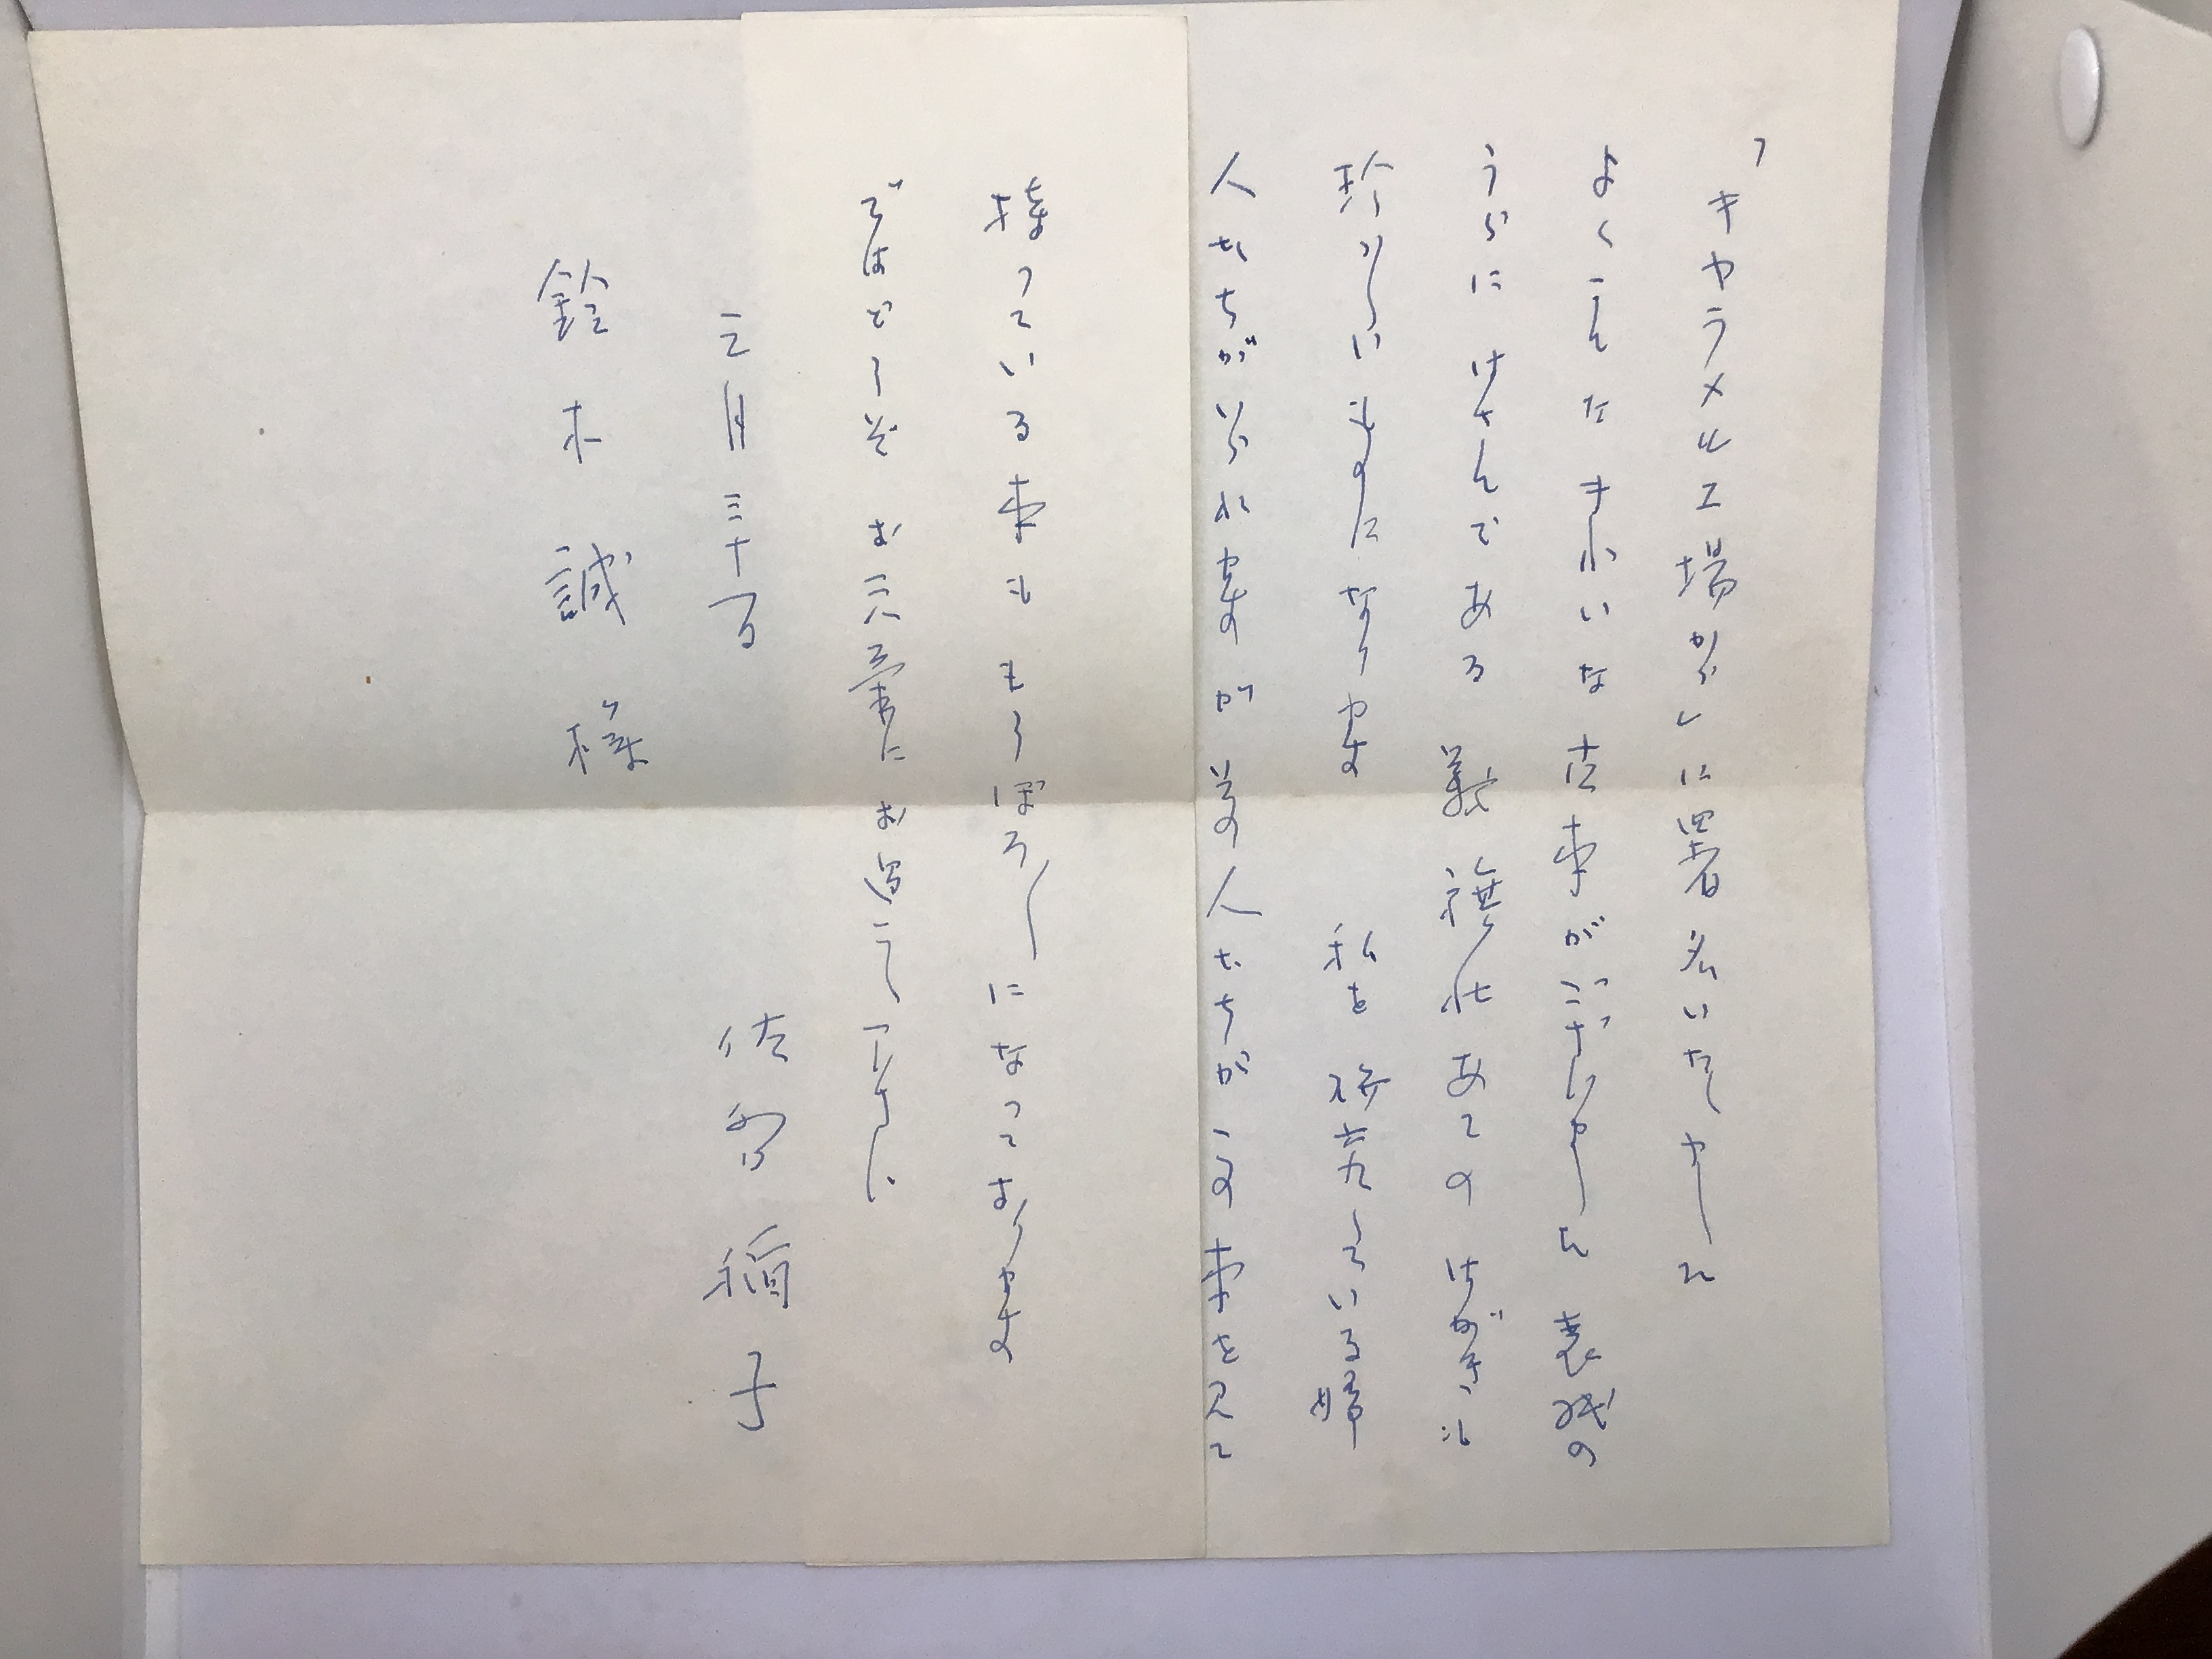 「キャラメル工場から」に署名いたしまして
よくこんなきれいな古本がございましたこと 裝幀の
うらにはさんである義理 あてのはがきも
珍しいものになりました 私を研究している若い
人たちがいられますが、その人たちがこの本を見て
持っている本ももうぼろぼろになっております
ではどうぞお大事にお過し下さい、
三月三十日
佐多稲子
鈴木誠様